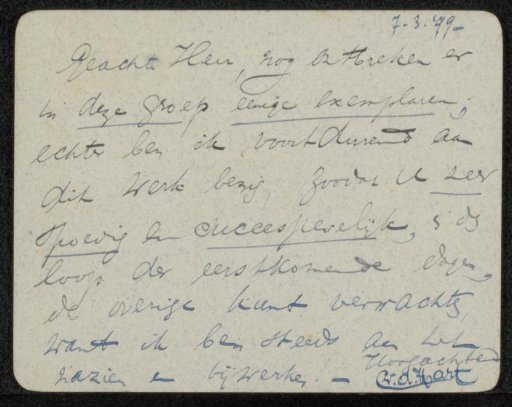 7.3.'99-
Geachte Heer, nog ontbreken er
in deze groep eenige exemplaren,
echter ben ik voortdurend aan
dit werk bezig, zoodat U zeer
spoedig en successievelijk, i/d
loop der eerstkomende dagen,
de overige kunt verwachten,
want ik ben steeds aan het
nazien en bijwerken! -
Hoogachtend
v.d.Hart